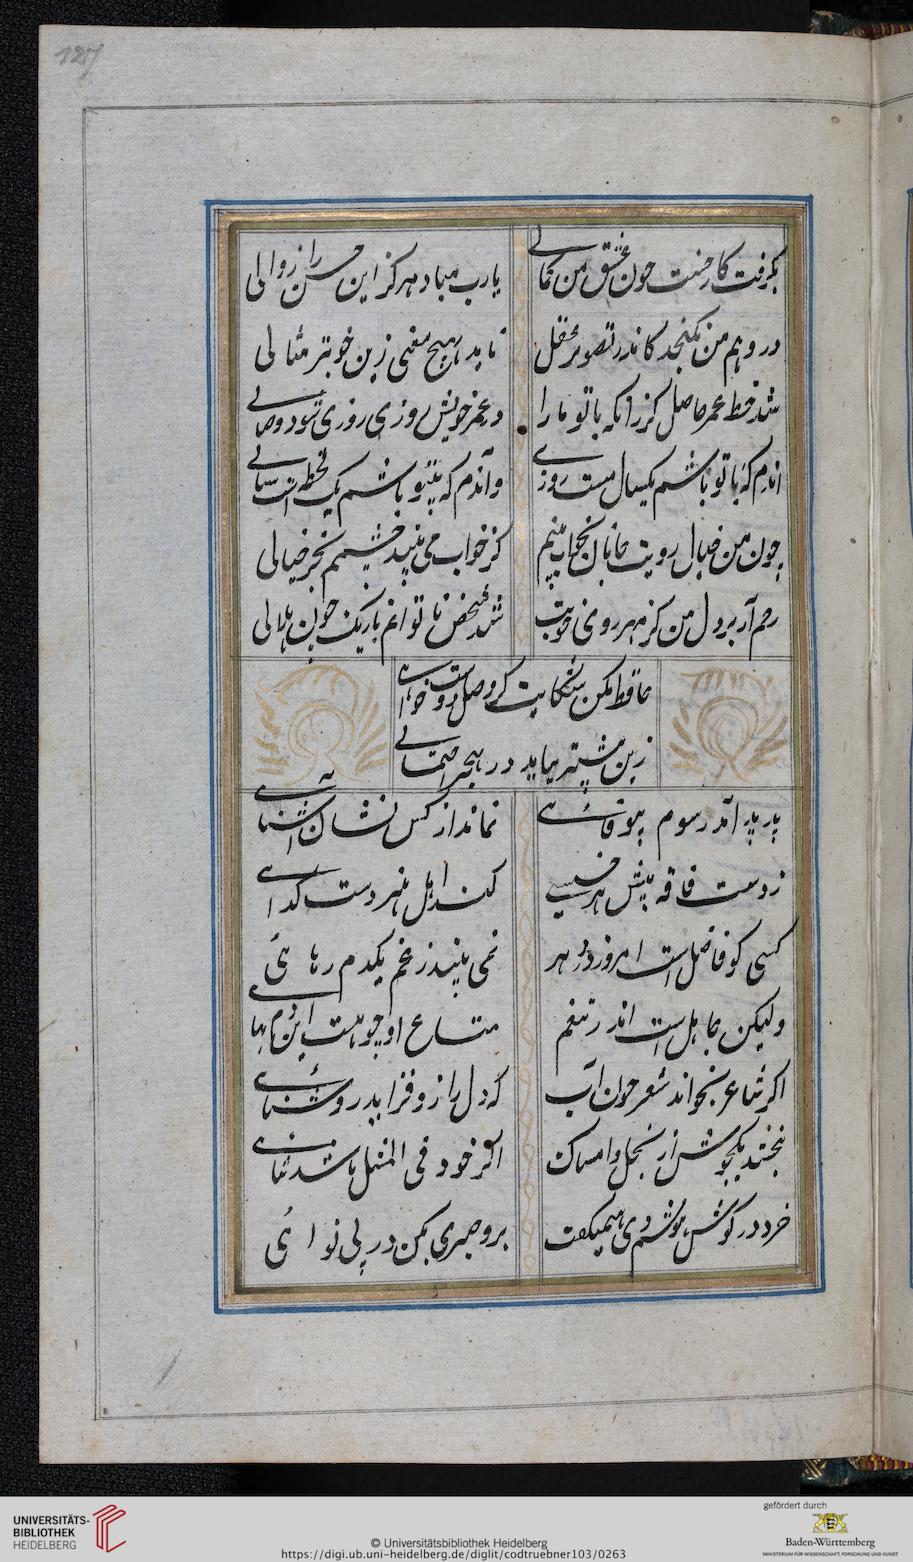 127
بگرفت کار حسنت چون عشق من کمالی
یارب مباد هرگز این حسن را زوالی
در وهم من نگنجد کاندر تصور عقل
ناید بهیچ معنی زین خوبتر مثالی
شد حظ عمر حاصل کز زانکه با تو ما را
در عمر خویش روزی روزی شود وصالی
اندم که با تو باشم یکسال هست روزی
و آندم که بیتو باشم یک لحظه است سالی
چون من خیال رویت جانان بخواب بینم
کز خواب می نبیند چشمم بجز خیالی
رحم آر بر دل من کز مهر روی خوبت
شد شخص ناتوانم باریک چون هلالی
حافظ مکن شکایت گر وصل دوست خواهی
زین بیشتر بباید در هجر احتمالی
پدید آمد رسوم بیوفائی
نماند از کس نشان آشنائی
ز دست فاقه پیش هر خسیسی
کنند اهل هنر دست گدائی
کسی کو فاضل است امروز در دهر
نمی بیند ز غم یکدم رهائی
ولیکن جاهل است اندر تنعم
متاع او چو هست این دم بهائی
اگر شاعر بخواند شعر چون آب
که دل را زو فزاید روشنائی
نبخشندش یکی جو از بخل و امساک
اگر خود فی المثل باشد سنائی
خرد در گوش هوشم دی همیگفت
برو صبری بکن در بی نوائی
UNIVERSITÄTS-
BIBLIOTHEK
HEIDELBERG
© Universitätsbibliothek Heidelberg
https://digi.ub.uni-heidelberg.de/diglit/codtruebner103/0263
gefördert durch
Baden-Württemberg
MINISTERIUM FÜR WISSENSCHAFT, FORSCHUNG UND KUNST